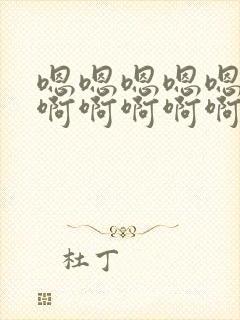 嗯嗯嗯嗯嗯
啊啊啊啊啊
杜丁